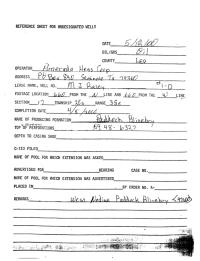 REFERENCE SHEET FOR UNDESIGNATED WELLS
DATE 5/12/00
OIL/GAS Oil
COUNTY Lea
OPERATOR Amerada Hess Corp
ADDRESS PO Box 840 Seminole Tx 79360
LEASE NAME, WELL NO. M J Raley #1-O
FOOTAGE LOCATION 660 FROM THE N LINE AND 660 FROM THE LINE
SECTION 17 TOWNSHIP RANGE
COMPLETION DATE
NAME OF PRODUCING FORMATION Paddock Blinebry
TOP OF PERFORATIONS 5948-6322
DEPTH TO CASING SHOE
C-123 POOLS
NAME OF POOL FOR WHICH EXTENSION WAS ASKED
ADVERTISED FOR HEARING CASE NO.
NAME OF POOL FOR WHICH EXTENSION WAS ADVERTISED
PLACED IN BY ORDER NO. R-
REMARKS West Nadine Paddock Blinebry